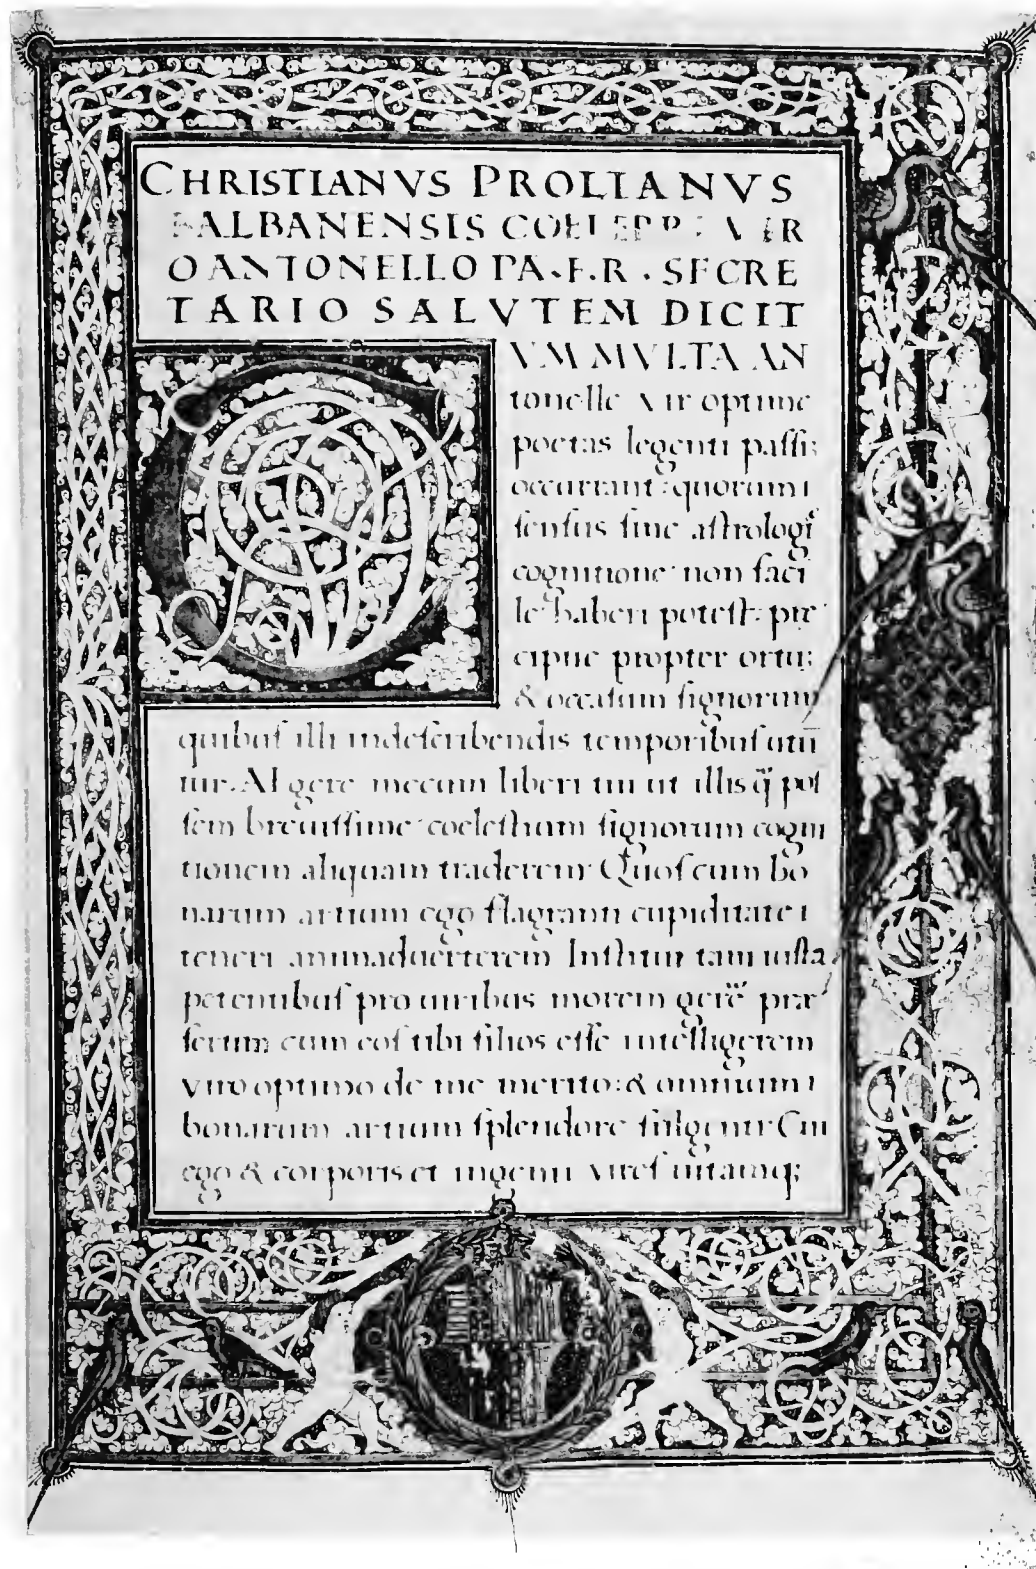 CHRISTIANVS PROLIANVS
BALBANENSIS
O ANTONELLO PA.F.R. SECRE
TARIO SALVTEM DICIT
VM MVLTA AN
tonelle Vir optime
poetas legenti passi;
occurrant: quorum
sensus sine astrologi
cognitione non faci
le haberi potest: præ
cipue propter ortu;
& occasum signorum
quibus illi indescribendis temporibus utū
tur. AI gere mecum liberi tui ut illis q̄ pos
sem breuissime coelestium signorum cogni
tionem aliquam traderem Quos cum bo
narum artium ego flagranti cupiditate
teneri animaduerterem Institui tam iusta
petentibus pro uiribus morem gerē præ
sertim cum eos tibi filios esse intelligerem
viro optimo de me merito: & omnium
bonarum artium splendore fulgenti Cui
ego & corporis et ingenii vires uitamq;